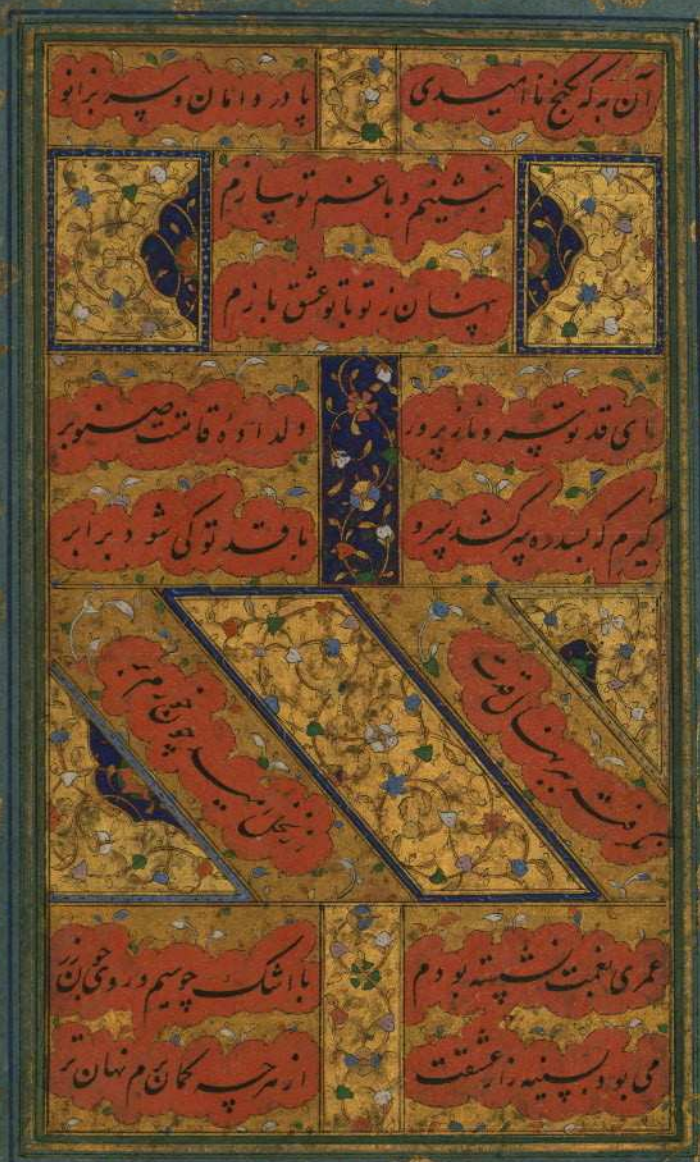 آن به که بکنج ناامیدی
پا در دامان و سر بزانو
بنشینم و با غم تو سازم
پنهان ز تو با تو عشق بازم
ای قد تو سرو ناز پرور
دلدادهٔ قامتت صنوبر
گیرم که بسدره سر کشد سرو
با قد تو کی شود برابر
نگرفته بر نهال قدت
نخل چو
عمری بغمت نشسته بودم
با اشک چو سیم و روی چون زر
می بود بسینه راز عشقت
از هر چه گمان برم نهان تر